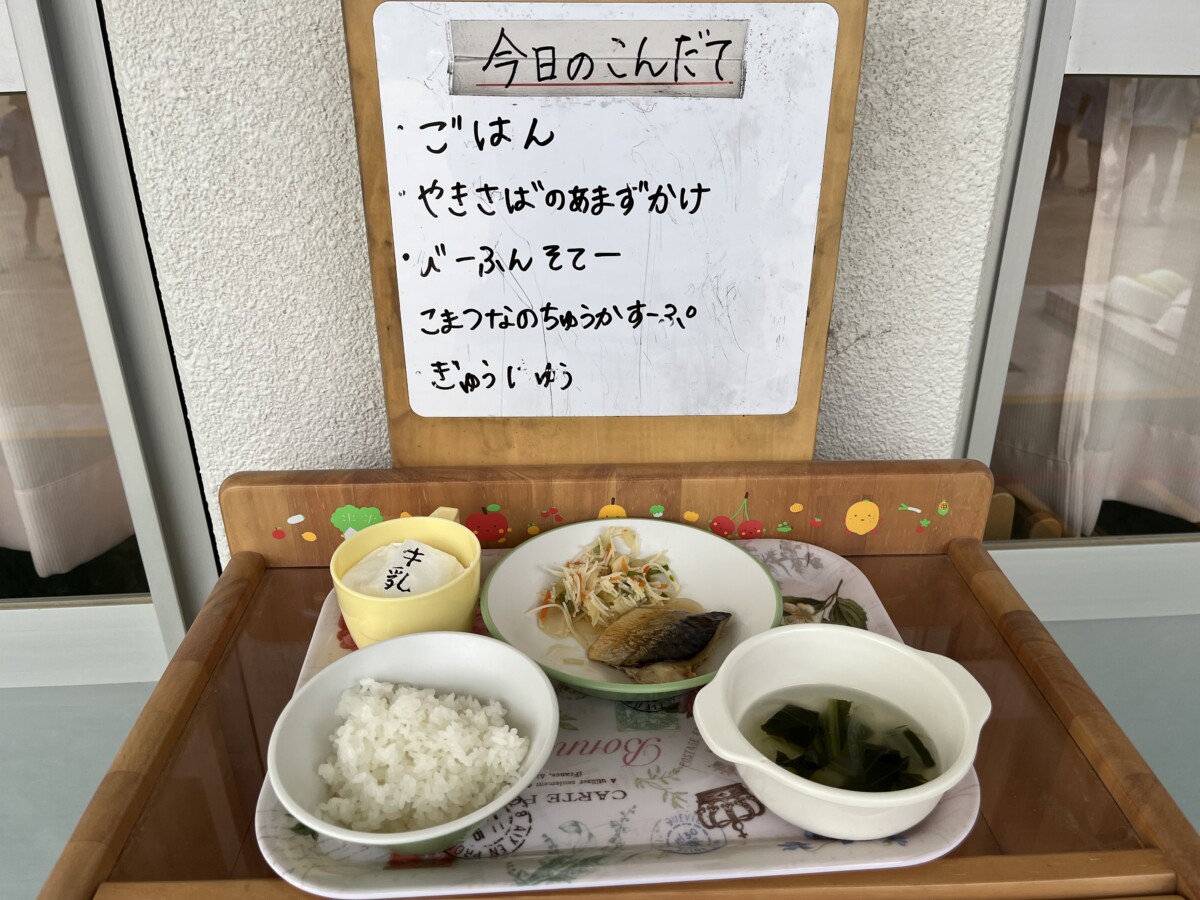 今日のこんだて
・ごはん
・やきさばのあまずかけ
・びーふんそてー
こまつなのちゅうかすーぷ
ぎゅうじゅう
牛乳
Bonn
CARTE PO